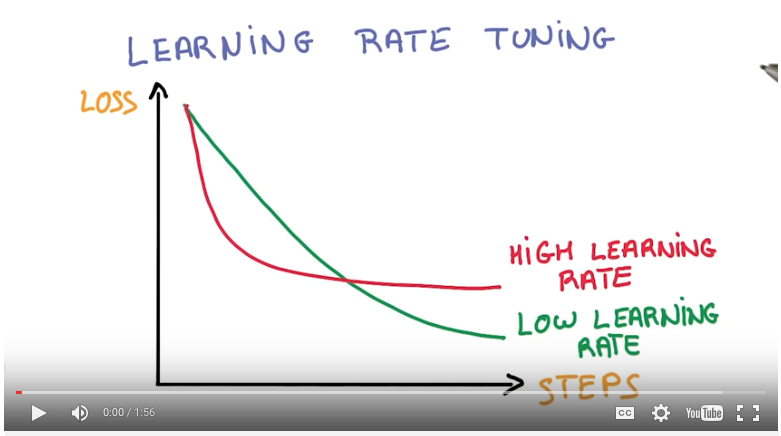 LEARNiNG RATE TUNiNG
LOSS
HiGH LEARNiNG
RATE
LOW LEARNiNG
RATE
STEPS
0:00 / 1:56
CC
YouTube